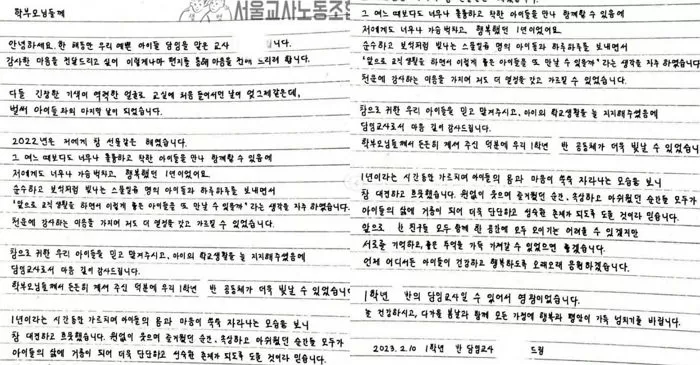 학부모님께
서울교사노동조합
안녕하세요. 한 해동안 우리 예쁜 아이들 담임을 맡은 교사 니다.
감사한 마음을 전달드리고 싶어 이렇게나마 편지를 통해 마음을 전해 드리려 합니다.
다들 긴장한 기색이 역력한 얼굴로 교실에 처음 들어서던 날이 엊그제같은데,
벌써 아이들과의 마지막 날이 되었습니다.
2022년은 저에게 참 선물같은 해였습니다.
그 어느 때보다도 너무나 훌륭하고 착한 아이들을 만나 함께할 수 있음에
저에게도 너무나 가슴벅차고, 행복했던 1년이었어요.
순수하고 보석처럼 빛나는 스물일곱 명의 아이들과 하루하루를 보내면서
"앞으로 교직 생활을 하면서 이렇게 좋은 아이들을 또 만날 수 있을까"라는 생각을 자주 하였습니다.
천운에 감사하는 마음을 가지며 저도 더 열정을 갖고 가르칠 수 있었습니다.
참으로 귀한 우리 아이들을 믿고 맡겨주시고, 아이의 학교생활을 늘 지지해주셨음에
담임교사로서 마음 깊이 감사드립니다.
학부모님들께서 든든히 계셔 주신 덕분에 우리 1학년 반 공동체가 더욱 빛날 수 있었습니
1년이라는 시간동안 가르치며 아이들의 몸과 마음이 쑥쑥 자라나는 모습을 보니
참 대견하고 흐뭇했습니다. 원없이 웃으며 즐거웠던 순간, 속상하고 아쉬웠던 순간들 모두가
아이들의 삶에 거름이 되어 더욱 단단하고 성숙한 존재가 되도록 도울 것이라 믿습니다.
그 어느 때보다도 너무나 훌륭하고 착한 아이들을 만나 함께할 수 있음에
저에게도 너무나 가슴벅차고, 행복했던 1년이었어요.
순수하고 보석처럼 빛나는 스물일곱 명의 아이들과 하루하루를 보내면서
"앞으로 교직 생활을 하면서 이렇게 좋은 아이들을 또 만날 수 있을까"라는 생각을 자주 하였습니다
천운에 감사하는 마음을 가지며 저도 더 열정을 갖고 가르칠 수 있었습니다.
참으로 귀한 우리 아이들을 믿고 맡겨주시고, 아이의 학교생활을 늘 지지해주셨음에
담임교사로서 마음 깊이 감사드립니다.
학부모님들께서 든든히 계셔 주신 덕분에 우리 1학년 반 공동체가 더욱 빛날 수 있었습니다
1년이라는 시간동안 가르치며 아이들의 몸과 마음이 쑥쑥 자라나는 모습을 보니
참 대견하고 흐뭇했습니다. 원없이 웃으며 즐거웠던 순간, 속상하고 아쉬웠던 순간들 모두가
아이들의 삶에 거름이 되어 더욱 단단하고 성숙한 존재가 되도록 도울 것이라 믿습니다.
앞으로 한 친구들 모두 함께 한 공간에 모두 모이기는 어려울 수 있겠지만
서로를 기억하고, 좋은 추억을 가득 가져갈 수 있었으면 좋겠습니다.
언제 어디서든 아이들이 건강하고 행복하도록 오래오래 응원하겠습니다.
1학년 반의 담임교사일 수 있어서 영광이었습니다.
늘 건강하시고, 다가올 봄날과 함께 모든 가정에 행복과 평안이 가득 넘치기를 바랍니다.
2023. 2. 10 1학년 반 담임교사 드림